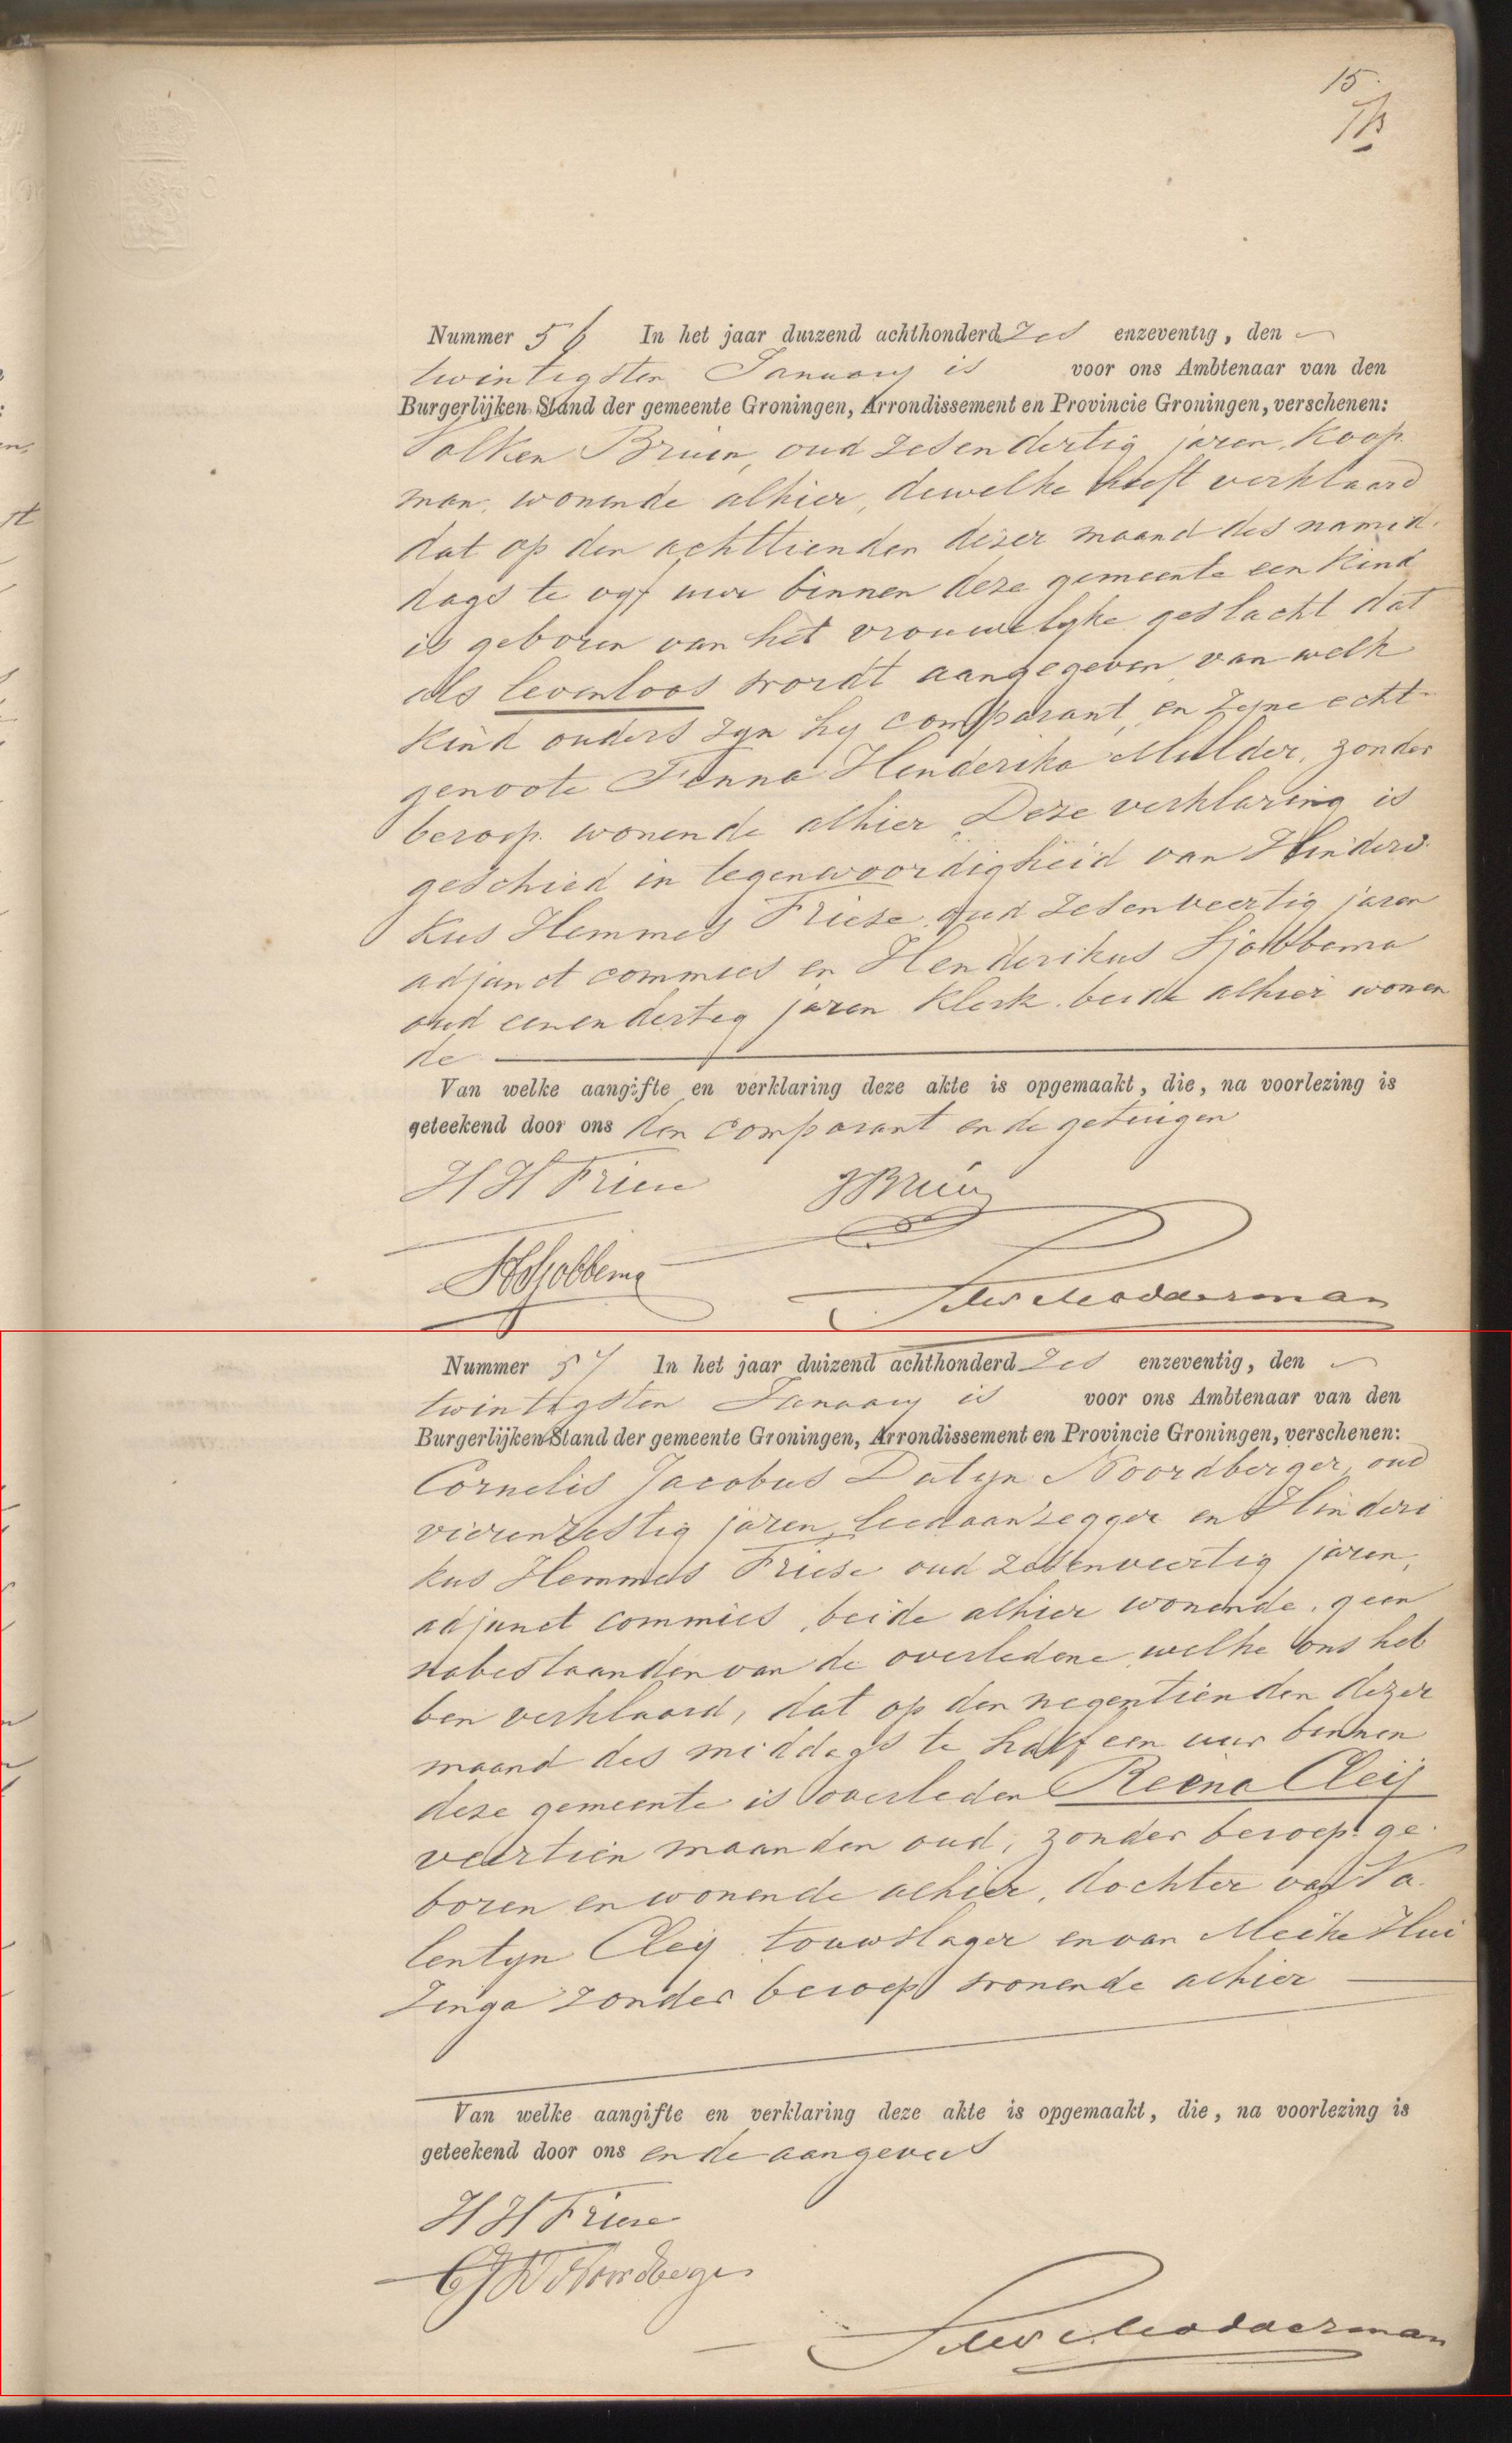 15
Nummer 56 In het jaar duizend achthonderd zes enzeventig, den
twintigsten January is voor ons Ambtenaar van den
Burgerlijken Stand der gemeente Groningen, Arrondissement en Provincie Groningen, verschenen:
Folken Bruin, oud zesendertig jaren, Koop
man, wonende alhier, dewelke heeft verklaard
dat op den achttienden dezer maand des namid
dags te vyf ure binnen deze gemeente een kind
is geboren van het vrouwelyke geslacht dat
als levenloos wordt aangegeven, van welk
kind ouders zyn hy comparant, en zyne echt
genoote Fenna Henderika Mulder, zonder
beroep wonende alhier. Deze verklaring is
geschied in tegenwoordigheid van Hinderi
kus Hemmes Friese oud zesenveertig jaren
adjunct commies en Henderikus Sjobbema
oud eenendertig jaren Klerk beide alhier wonen
de
Van welke aangifte en verklaring deze akte is opgemaakt, die, na voorlezing is
geteekend door ons den comparant en de getuigen
H H Friese Bruin
H Sjobbema
Modderman
Nummer 57 In het jaar duizend achthonderd zes enzeventig, den
twintigsten January is voor ons Ambtenaar van den
Burgerlijken Stand der gemeente Groningen, Arrondissement en Provincie Groningen, verschenen:
Cornelis Jacobus Datyn Noordberger, oud
vierenzestig jaren, leedaanzegger en Hinderi
kus Hemmes Friese oud zesenveertig jaren,
adjunct commies, beide alhier wonende, geen
nabestaanden van de overledene, welke ons heb
ben verklaard, dat op den negentienden dezer
maand des middags te half een uur binnen
deze gemeente is overleden Reena Cleij
veertien maanden oud, zonder beroep ge
boren en wonende alhier, dochter van Va
lentyn Cleij touwslager en van Meike Hui
zinga zonder beroep wonende alhier
Van welke aangifte en verklaring deze akte is opgemaakt, die, na voorlezing is
geteekend door ons en de aangevers
H H Friese
C J D Noordberger
Modderman